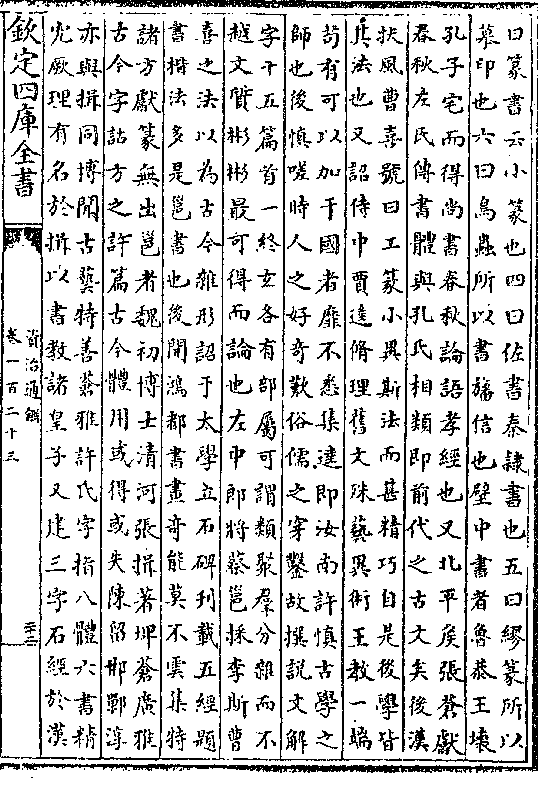 曰篆書云小篆也四曰佐書秦隸書也五曰繆篆所以
摹印也六曰鳥蟲所以書旛信也壁中書者魯恭王壞
孔子宅而得尚書春秋論語孝經也又北平侯張蒼獻
春秋左氏傳書體與孔氏相類即前代之古文矣後漢
扶風曹喜號曰工篆小異斯法而甚精巧自是後學皆
其法也又詔侍中賈逵脩理舊文殊藝異術王教一端
苟有可以加于國者靡不悉集逵即汝南許慎古學之
師也後慎嗟時人之好奇歎俗儒之穿鑿故撰説文解
字十五篇首一終亥各有部屬可謂類聚羣分雜而不
越文質彬彬最可得而論也左中郎將蔡邕採李斯曹
喜之法以為古今雜形詔于太學立石碑刊載五經題
書楷法多是邕書也後開鴻都書畫奇能莫不雲集特
諸方獻篆無出邕者魏初博士清河張揖著埤蒼廣雅
古今字詁方之許篇古今體用或得或失陳留邯鄲淳
亦與揖同博聞古藝特善蒼雅許氏字指八體六書精
究厥理有名於揖以書教諸皇子又建三字石經於漢
欽定四庫全書
資治通鑑
卷一百二十三